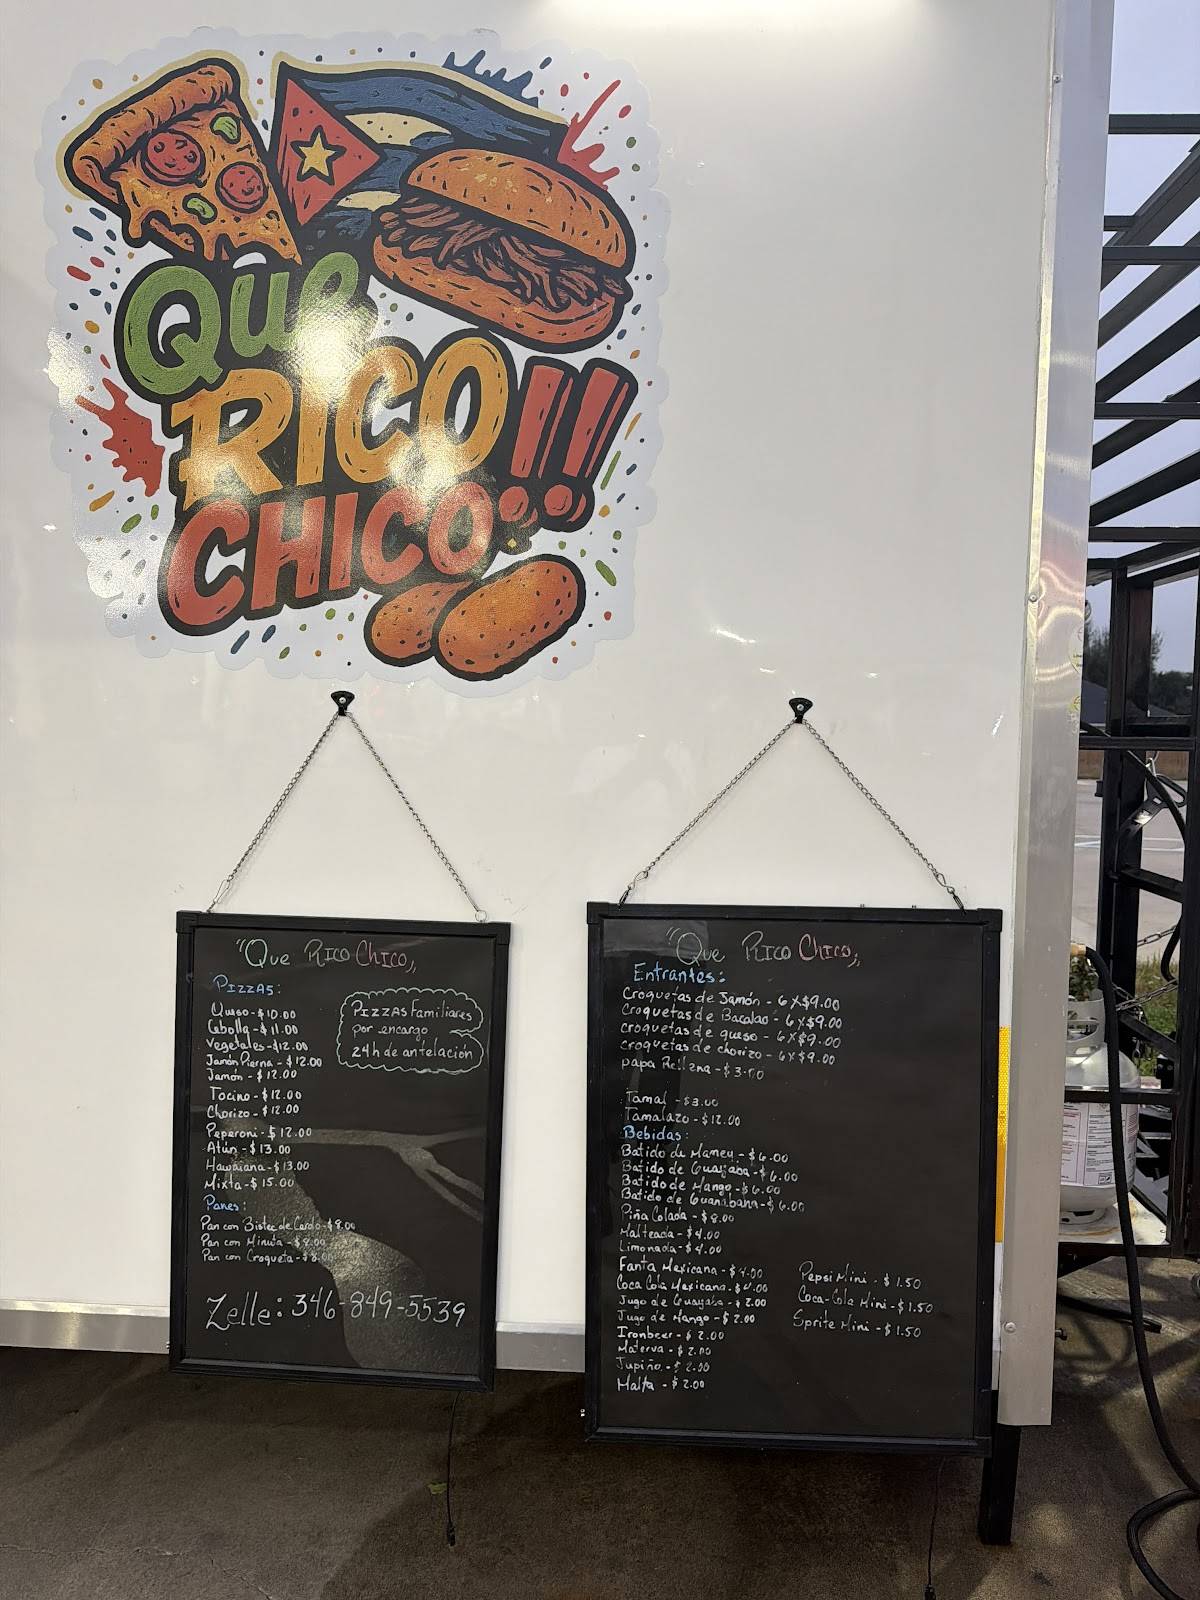 Que
RICO!!
CHICO
"Que RICO CHICO,,
PIZZAS:
Queso - $10.00
Cebolla - $11.00
Vegetales - $12.00
Jamón Pierna - $12.00
Jamón - $12.00
Tocino - $12.00
Chorizo - $12.00
Peperoni - $12.00
Atún - $13.00
Hawaiana - $13.00
Mixta - $15.00
PIZZAS Familiares
por encargo
24h de antelación
Panes:
Pan con Bistec de Cerdo - $9.00
Pan con Minuta - $8.00
Pan con Croqueta - $8.00
Zelle: 346-849-5539
"Que RICO CHICO,,
Entrantes:
Croquetas de Jamón - 6 X $9.00
Croquetas de Bacalao - 6 X $9.00
croquetas de queso - 6 X $9.00
croquetas de chorizo - 6 X $9.00
papa Rellena - $3.00
Tamal - $3.00
Tamalazo - $12.00
Bebidas:
Batido de Mamey - $6.00
Batido de Guayaba - $6.00
Batido de Mango - $6.00
Batido de Guanabana - $6.00
Piña Colada - $8.00
Malteada - $4.00
Limonada - $4.00
Fanta Mexicana - $4.00
Coca Cola Mexicana - $4.00
Jugo de Guayaba - $2.00
Jugo de Mango - $2.00
Ironbeer - $2.00
Materva - $2.00
Jupiña - $2.00
Malta - $2.00
Pepsi Mini - $1.50
Coca-Cola Mini - $1.50
Sprite Mini - $1.50